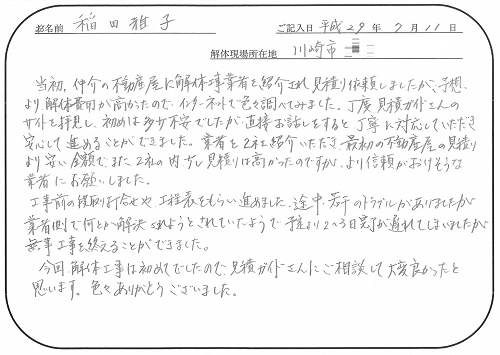 お名前 稲田雅子 ご記入日 平成29年7月11日
解体現場所在地 川崎市
当初、仲介の不動産屋に解体工事業者を紹介され見積り依頼しましたが、予想
より、解体費用が高かったので、インターネットで色々調べてみました。丁度見積ガイドさんの
サイトを拝見し、初めは多少不安でしたが、直接お話しをすると丁寧に対応していただき
安心して進めることができました。業者を2社紹介いただき最初の不動産屋の見積り
より安い金額で、また2社の内 少し見積りは高かったのですが、より信頼がおけそうな
業者にお願いしました。
工事前の段取り打合せや工程表をもらい進めました。途中、若干のトラブルがありましたが
業者側で何とか解決されようとされていたようで 予定より2〜3日完了が遅れてしまいましたが
無事工事を終えることができました。
今回、解体工事は初めてでしたので、見積ガイドさんにご相談して大変良かったと
思います。色々ありがとうございました。